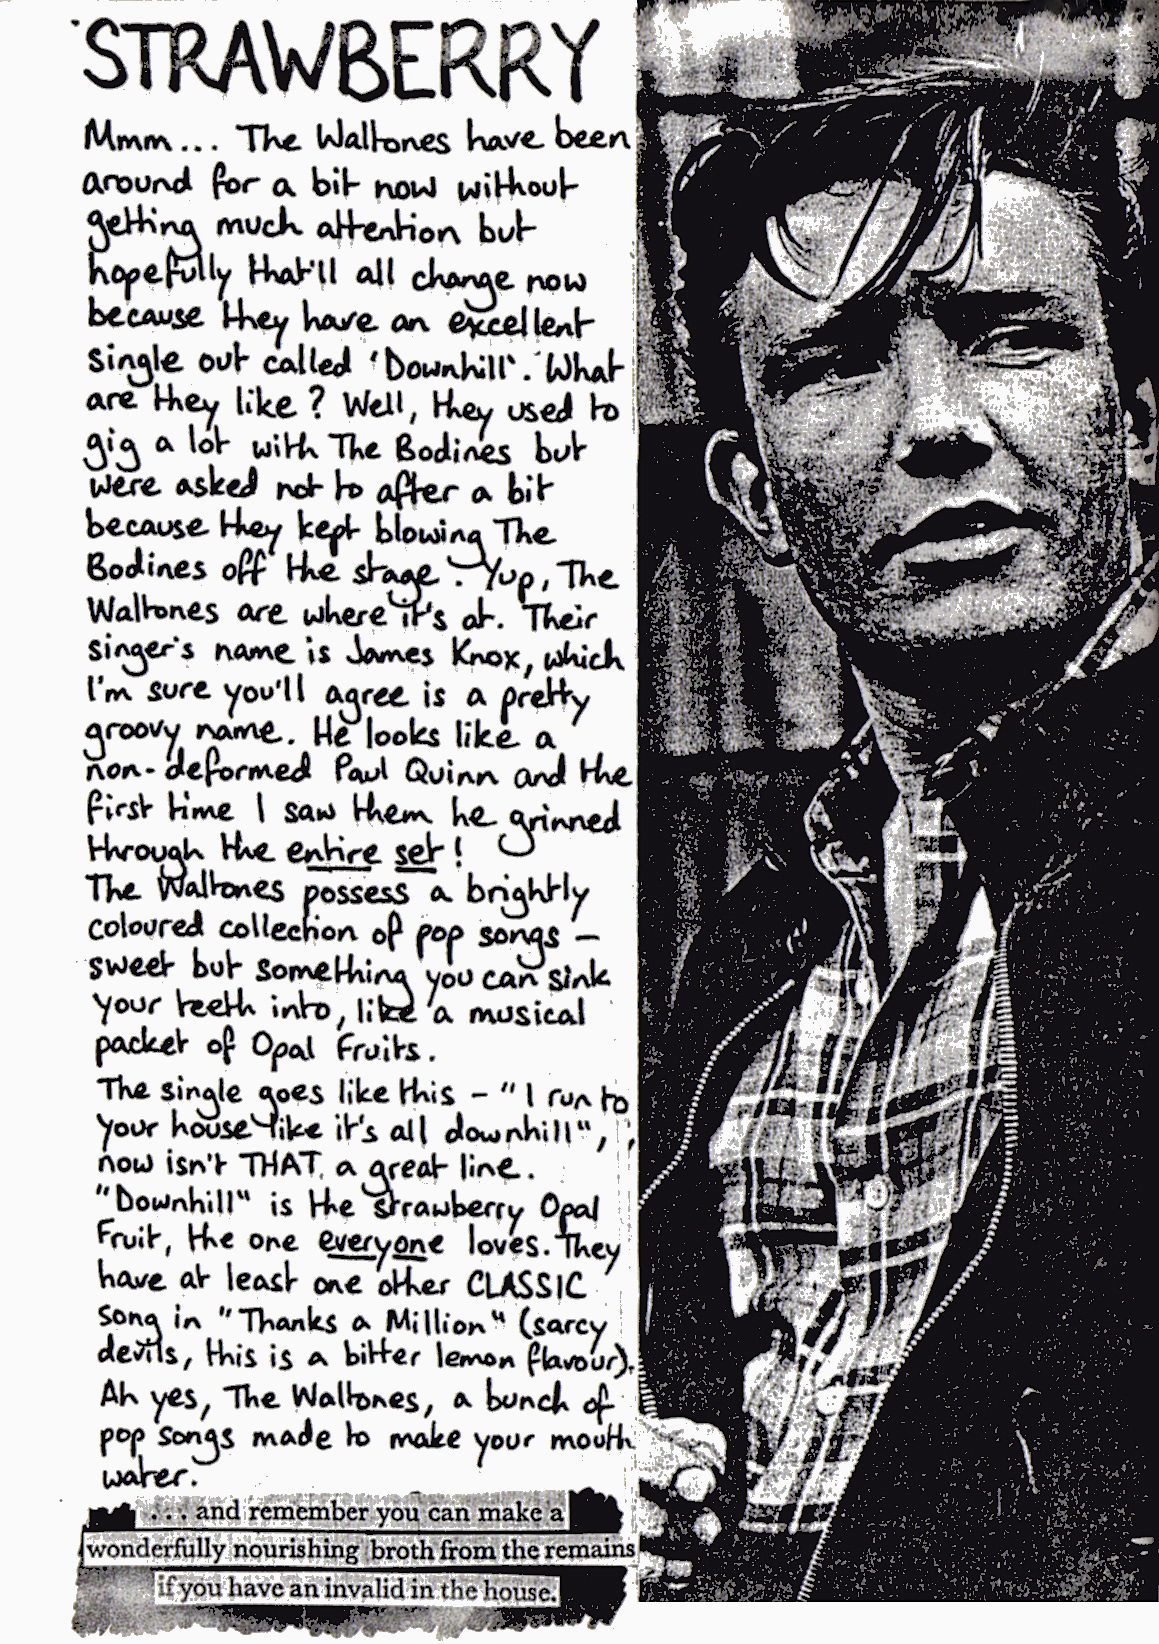 STRAWBERRY
Mmm... The Waltones have been
around for a bit now without
getting much attention but
hopefully that'll all change now
because they have an excellent
single out called 'Downhill'. What
are they like? Well, they used to
gig a lot with The Bodines but
were asked not to after a bit
because they kept blowing The
Bodines off the stage. Yup, The
Waltones are where it's at. Their
singer's name is James Knox, which
I'm sure you'll agree is a pretty
groovy name. He looks like a
non-deformed Paul Quinn and the
first time I saw them he grinned
through the entire set!
The Waltones possess a brightly
coloured collection of pop songs –
sweet but something you can sink
your teeth into, like a musical
packet of Opal Fruits.
The single goes like this – "I run to
your house like it's all downhill",
now isn't THAT a great line.
"Downhill" is the strawberry Opal
Fruit, the one everyone loves. They
have at least one other CLASSIC
song in "Thanks a Million" (sarcy
devils, this is a bitter lemon flavour).
Ah yes, The Waltones, a bunch of
pop songs made to make your mouth
water.
...and remember you can make a
wonderfully nourishing broth from the remains
if you have an invalid in the house.